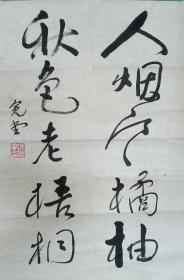 人烟寒橘柚
秋色老梧桐